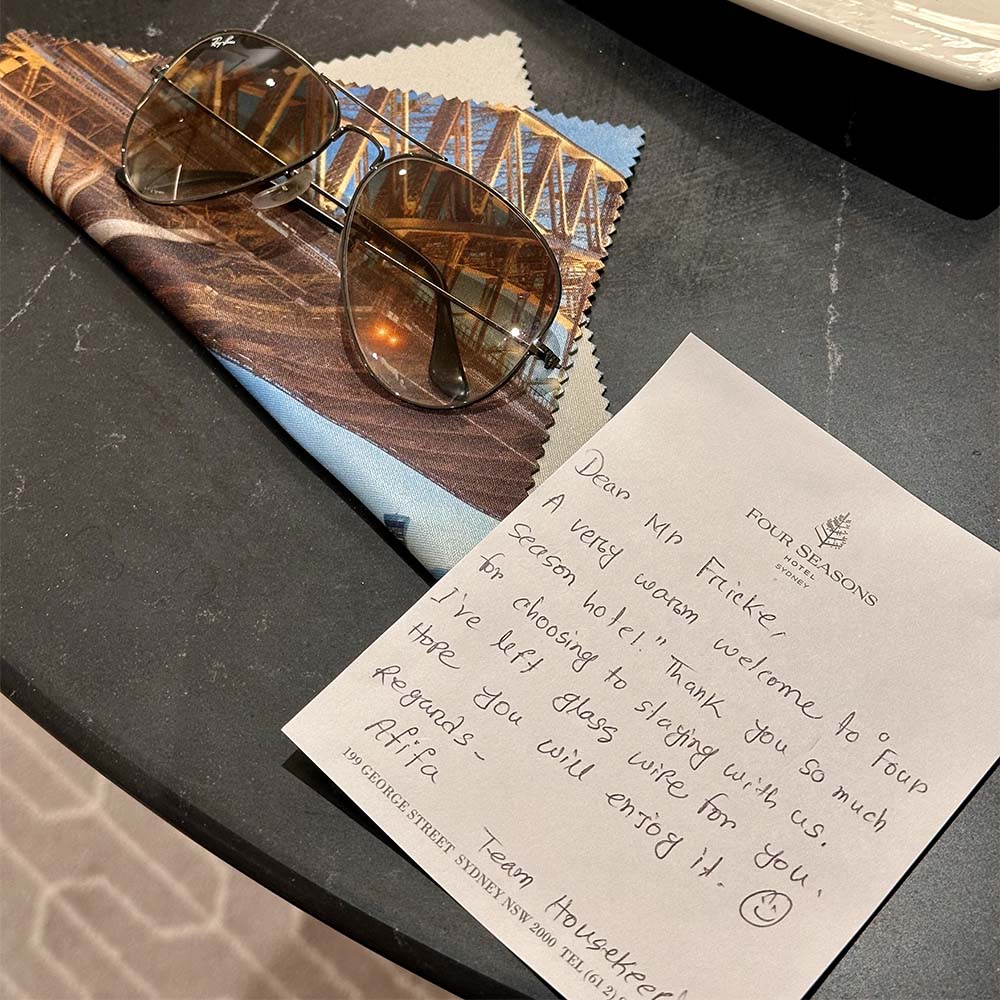 Ray-Ban
FOUR SEASONS
HOTEL
SYDNEY
Dear Mr Fricke,
A very warm welcome to "Four
Season hotel." Thank you so much
for choosing to staying with us.
I've left glass wipe for you.
Hope you will enjoy it.
Regards-
Afifa
Team Housekeep
199 GEORGE STREET SYDNEY NSW 2000 TEL (61 2)